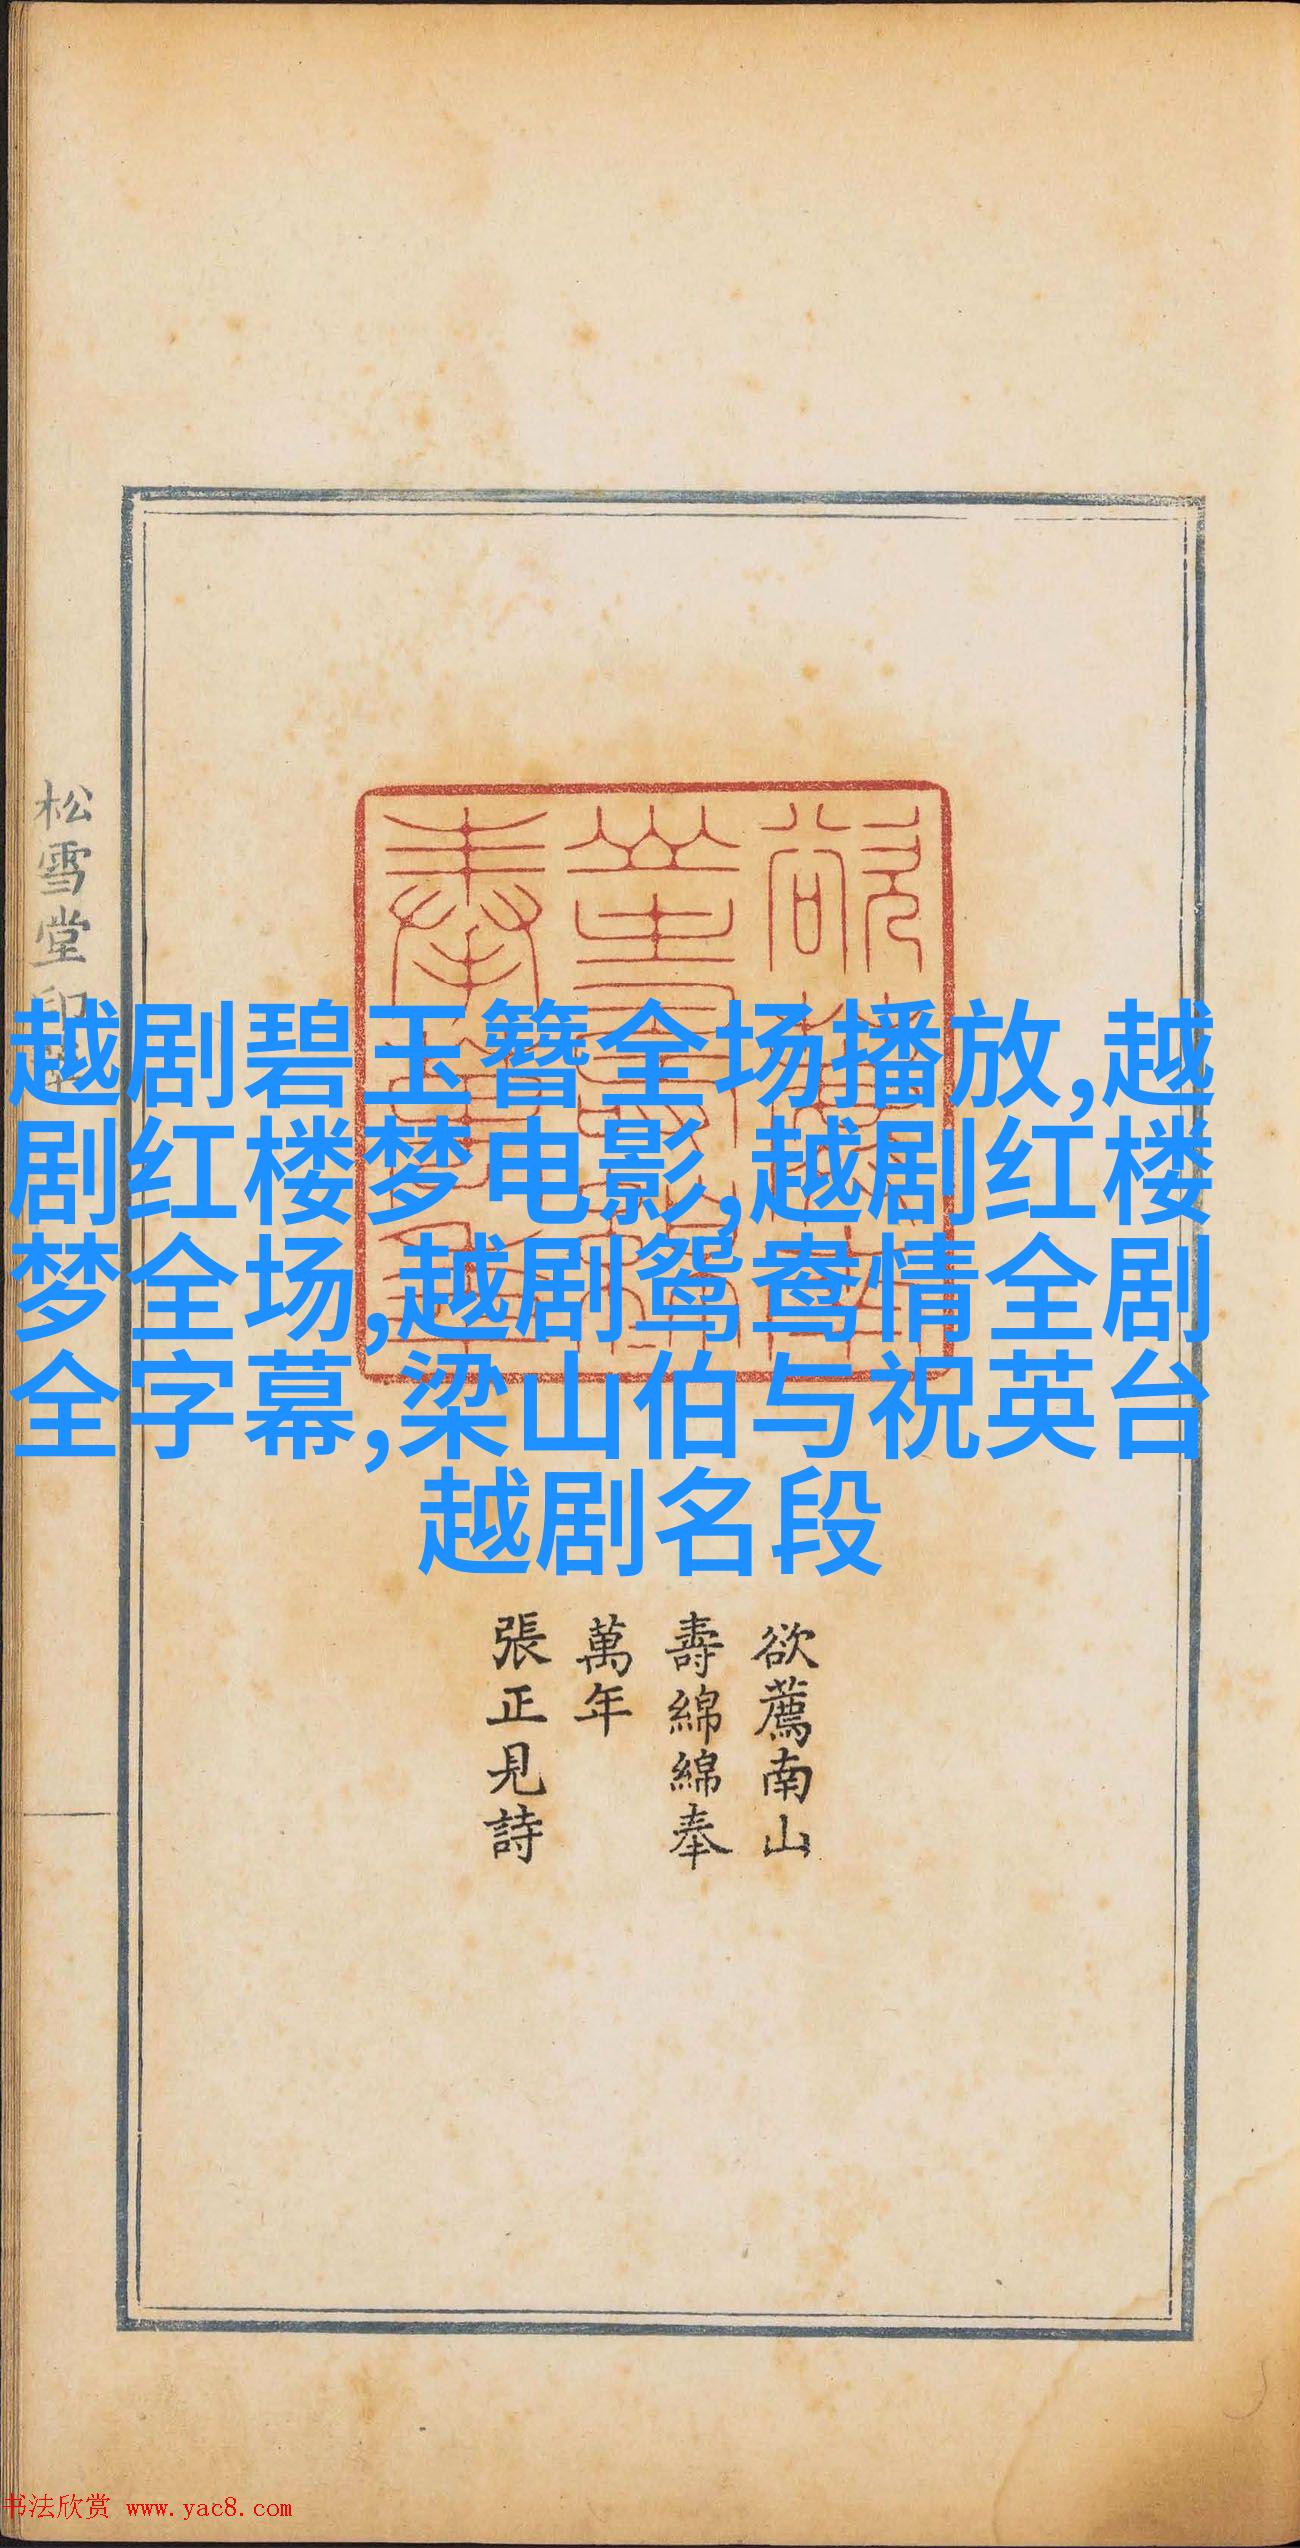 松雪堂印
越剧碧玉簪全场播放,越
剧红楼梦电影,越剧红楼
梦全场,越剧鸳鸯情全剧
全字幕,梁山伯与祝英台
越剧名段
欲薦南山
壽綿綿奉
萬年
張正見詩
书法欣赏 www.yac8.com